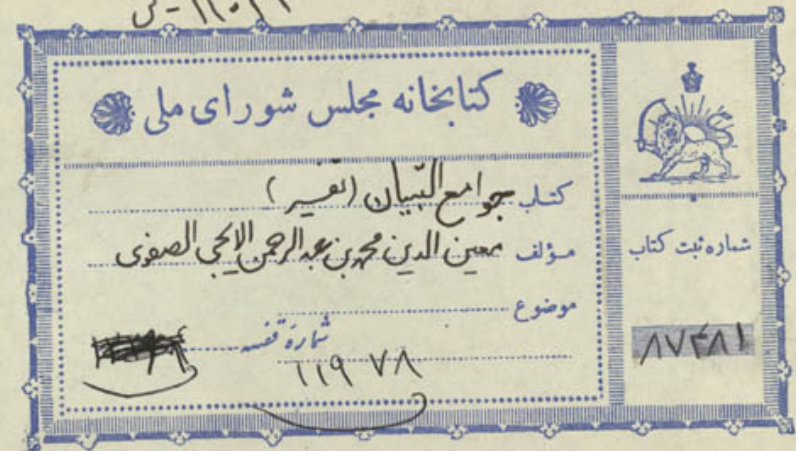 کتابخانه مجلس شورای ملی
کتاب جوامع التبیان (تفسیر)
مؤلف معین الدین محمد بن عبدالرحمن الایجی الصفوی
موضوع
شماره قفسه
۱۱۹۷۸
شماره ثبت کتاب
۸۷۴۸۱